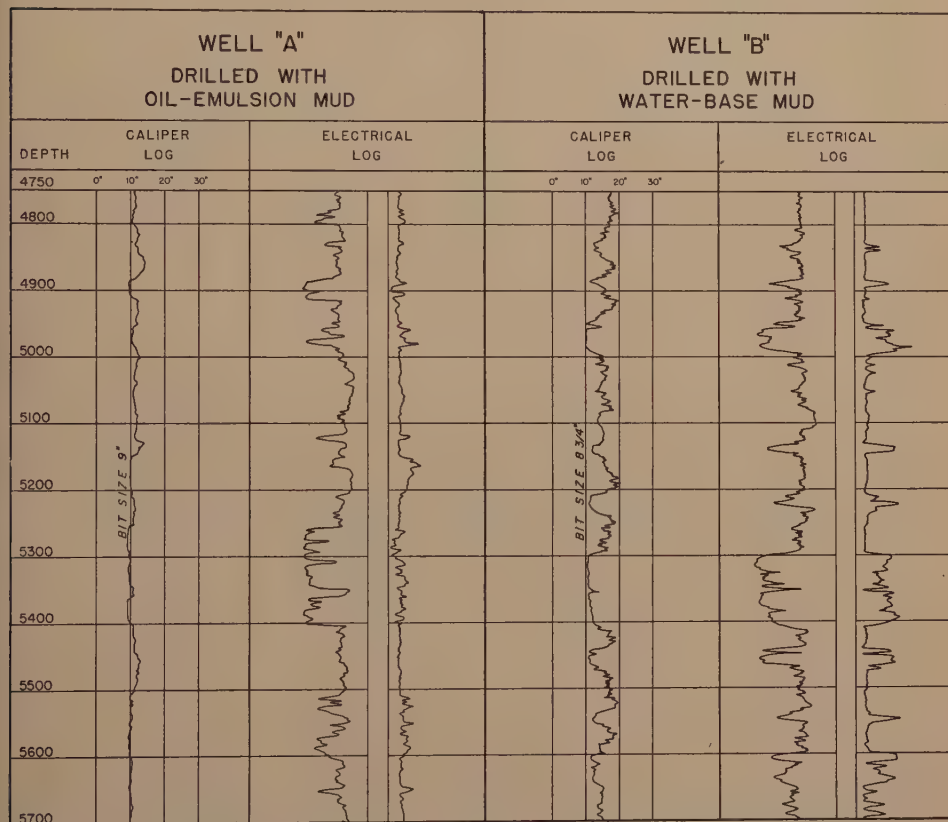 WELL "A"
DRILLED WITH
OIL-EMULSION MUD
WELL "B"
DRILLED WITH
WATER-BASE MUD
DEPTH
CALIPER
LOG
ELECTRICAL
LOG
CALIPER
LOG
ELECTRICAL
LOG
0" 10" 20" 30"
0" 10" 20" 30"
4750
4800
4900
5000
5100
5200
5300
5400
5500
5600
5700
BIT SIZE 9"
BIT SIZE 8 3/4"